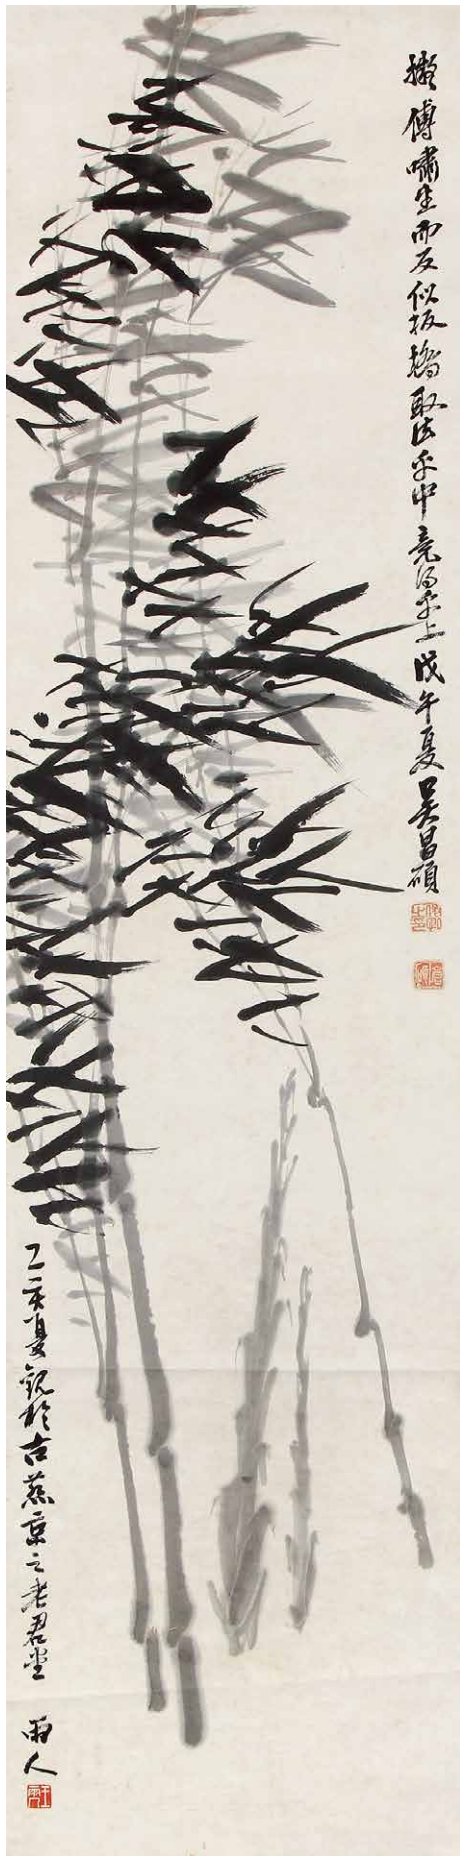 擬傅嘯生而反似板橋取法乎中竟得乎上戊午夏吳昌碩
乙亥夏觀於古燕京之老君堂 雨人